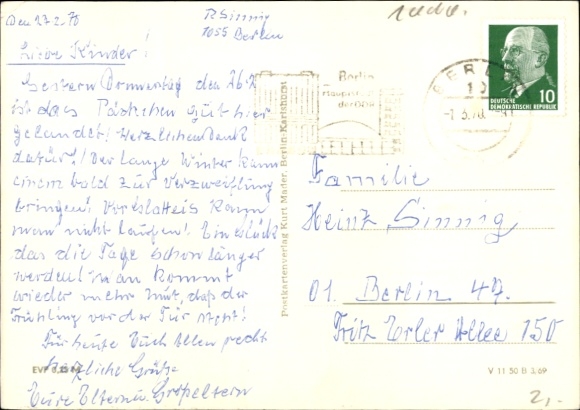 Den 27.2.70
R. Sinnig
1055 Berlin
Liebe Kinder!
Gestern Donnerstag den 26.2.
ist das Päckchen gut hier
gelandet! Herzlichen Dank
dafür! Der lange Winter kann
einem bald zur Verzweiflung
bringen! Vor Glatteis kann
man nicht laufen! Ein Glück
das die Tage schon länger
werden! man kommt
wieder mehr Mut, daß der
Frühling vor der Tür steht!
Für heute Euch Allen recht
herzliche Grüße
Eure Eltern u. Großeltern
EVP
Postkartenverlag Kurt Mader, Berlin-Karlshorst
Berlin
Hauptstadt
der DDR
BERLIN
10
DEUTSCHE
DEMOKRATISCHE REPUBLIK
Familie
Heinz Sinnig
01. Berlin 47.
Fritz Erler Allee 150
V 11 50 B 3,69
2,-